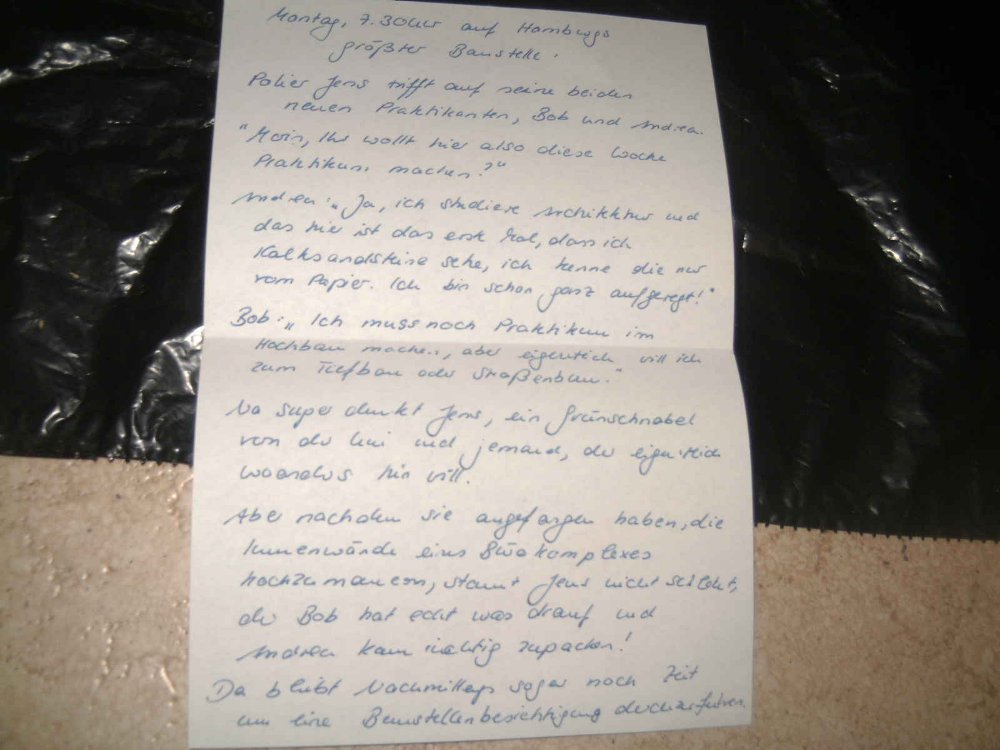 Montag, 7.30Uhr auf Hamburgs
größter Baustelle.
Polier Jens trifft auf seine beiden
neuen Praktikanten, Bob und Andrea.
"Moin, Ihr wollt hier also diese Woche
Praktikum machen?"
Andrea: „Ja, ich studiere Architektur und
das hier ist das erste Mal, dass ich
Kalksandsteine sehe, ich kenne die nur
vom Papier. Ich bin schon ganz aufgeregt!"
Bob: „Ich muss noch Praktikum im
Hochbau machen, aber eigentlich will ich
zum Tiefbau oder Straßenbau."
Na super denkt Jens, ein Grünschnabel
von der Uni und jemand, der eigentlich
woanders hin will.
Aber nachdem sie angefangen haben, die
Innenwände eines Bürokomplexes
hochzumauern, staunt Jens nicht schlecht,
der Bob hat echt was drauf und
Andrea kann richtig zupacken!
Da bleibt Nachmittags sogar noch Zeit
um eine Baustellenbesichtigung durchzuführen.